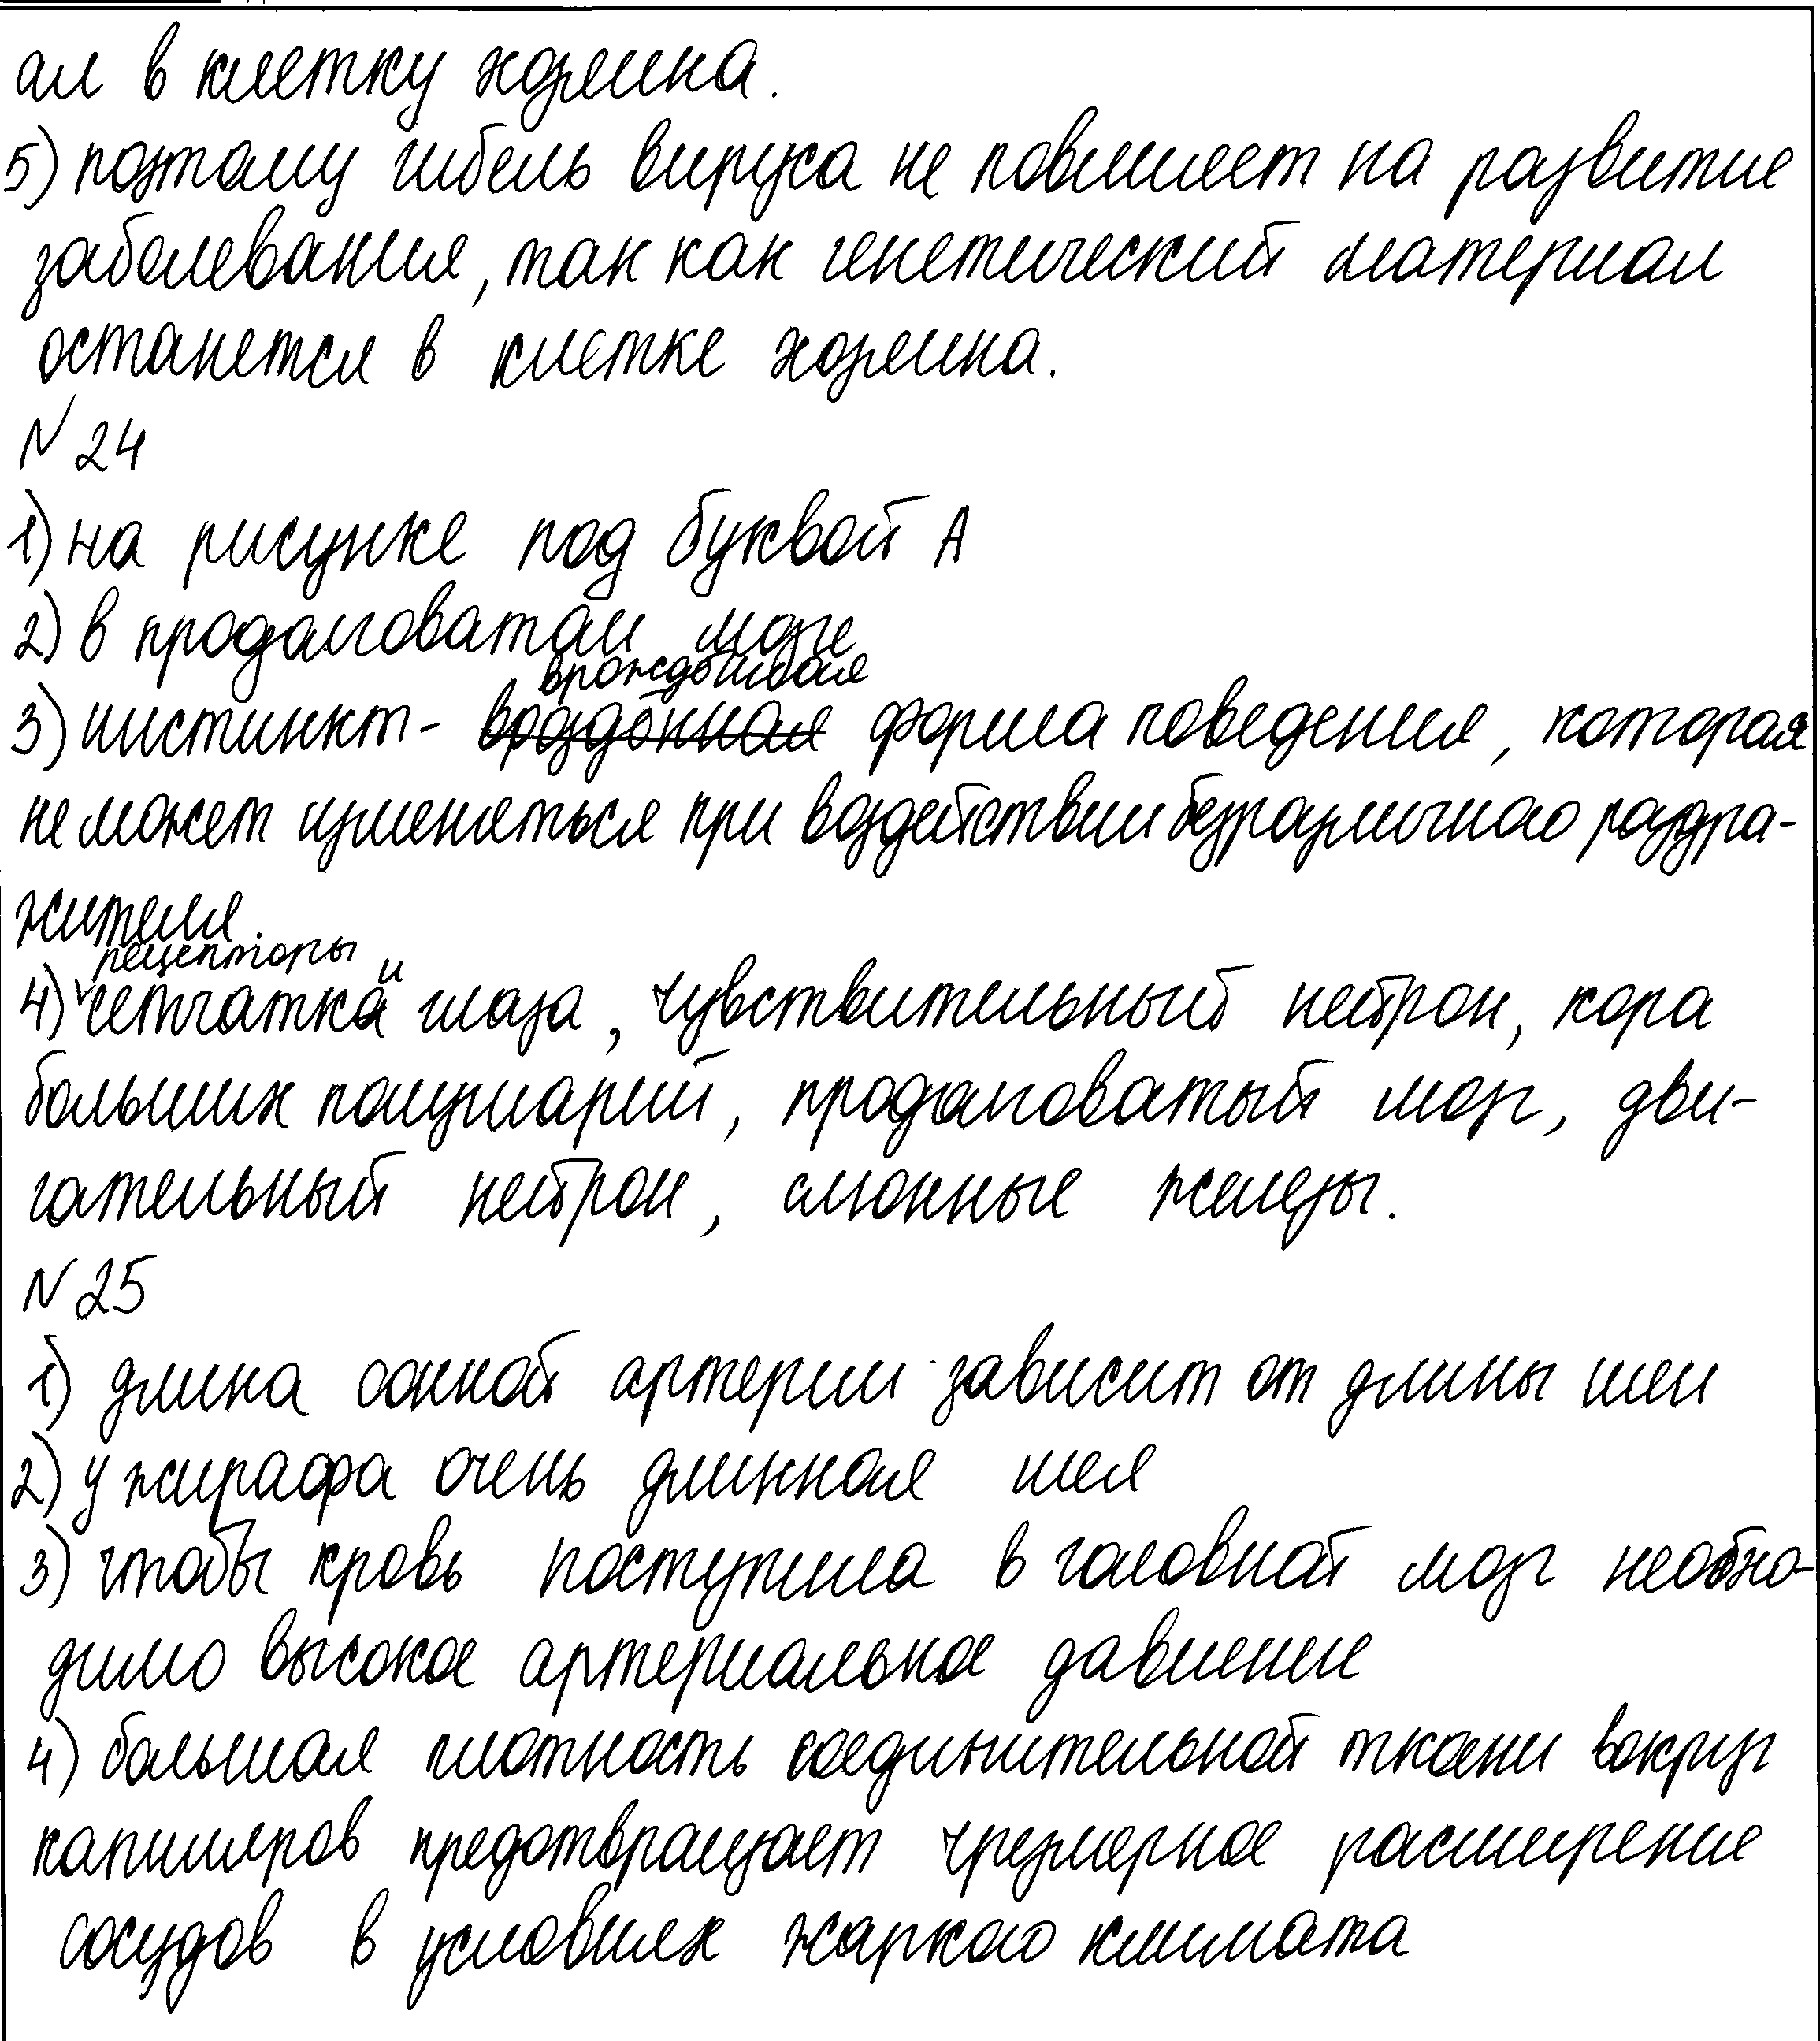 ал в клетку хозяина.
5) поэтому гибель вируса не повлияет на развитие
заболевания, так как генетический материал
останется в клетке хозяина.
N 24
1) на рисунке под буквой А
2) в продолговатом мозге
врождённая
3) инстинкт - форма поведения, которая
не может изменяться при воздействии безразличного раздра-
жителя.
рецепторы и
4) сетчатка глаза, чувствительный нейрон, кора
больших полушарий, продолговатый мозг, дви-
гательный нейрон, слюнные железы.
N 25
1) длина сонной артерии зависит от длины шеи
2) у жирафа очень длинная шея
3) чтобы кровь поступила в головной мозг необхо-
димо высокое артериальное давление
4) большая плотность соединительной ткани вокруг
капилляров предотвращает чрезмерное расширение
сосудов в условиях жаркого климата